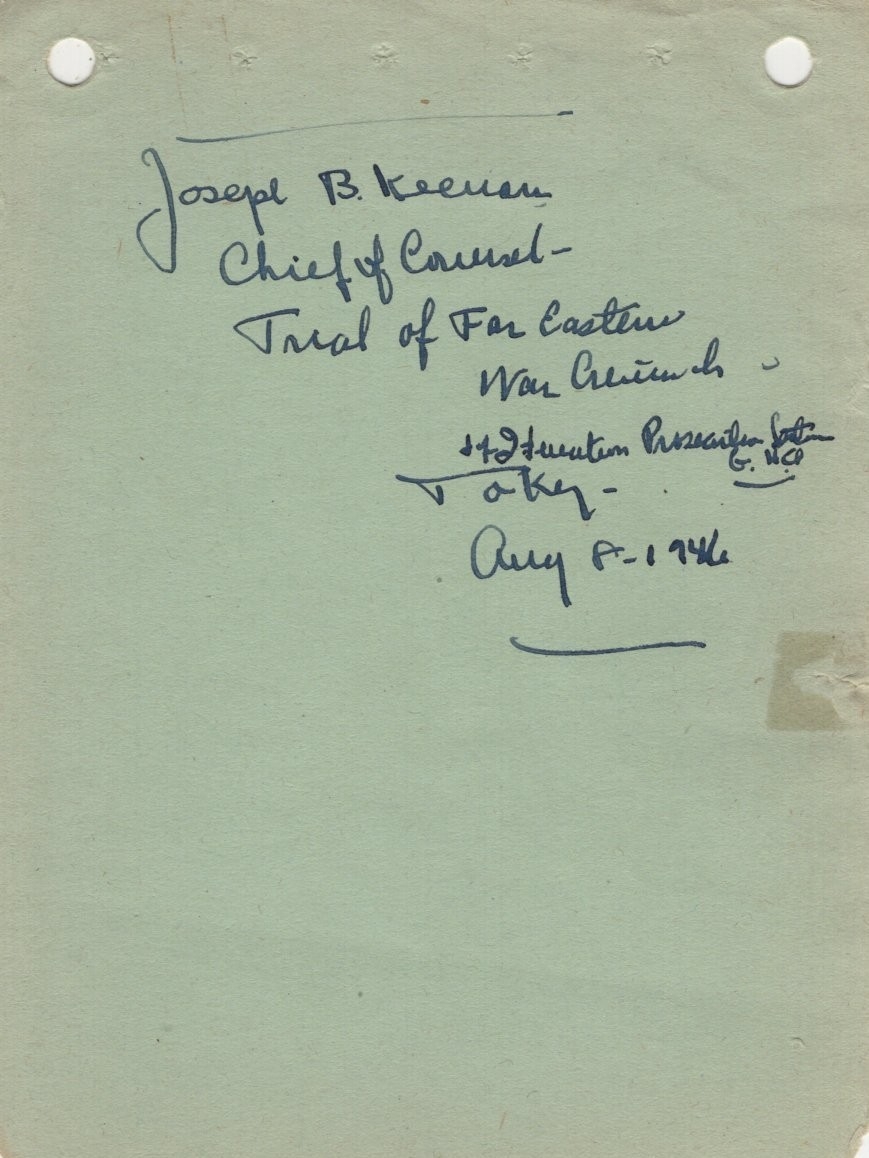 Joseph B. Keenan
Chief of Counsel -
Trial of Far Eastern
War Criminals -
Prosecution Section
G. H.Q
Tokey -
Aug 8 - 1946